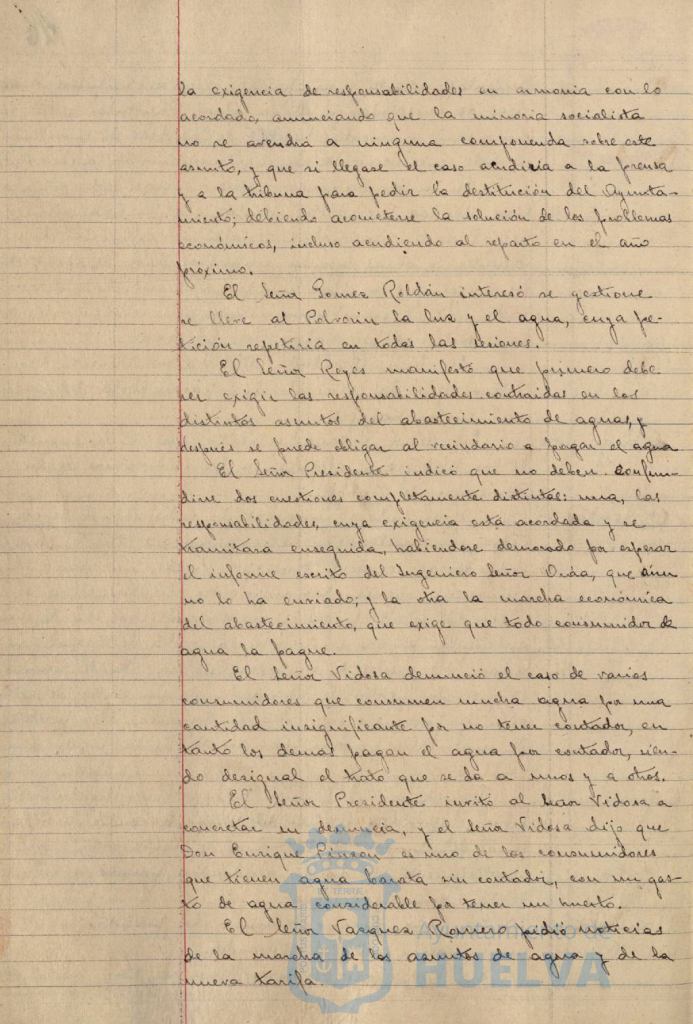 la exigencia de responsabilidades en armonia con lo
acordado, anunciando que la minoria socialista
no se avendrá a ninguna componenda sobre este
asunto, y que si llegase el caso acudiria a la prensa
y a la tribuna para pedir la destitución del Ayunta-
miento; debiendo acometerse la solución de los problemas
económicos, incluso acudiendo al reparto en el año
próximo.
El Señor Gomez Roldán interesó se gestione
se lleve al Polvorin la luz y el agua, cuya pe-
tición repetiria en todas las sesiones.
El Señor Reyes manifestó que primero debe
ser exigir las responsabilidades contraidas en los
distintos asuntos del abastecimiento de aguas, y
después se puede obligar al vecindario a pagar el agua
El Señor Presidente indicó que no deben confun-
dirse dos cuestiones completamente distintas: una, las
responsabilidades, cuya exigencia está acordada y se
tramitará enseguida, habiendose demorado por esperar
el informe escrito del Ingeniero Señor que aún
no lo ha enviado; y la otra la marcha económica
del abastecimiento, que exige que todo consumidor de
agua la pague.
El Señor Vidosa denunció el caso de varios
consumidores que consumen mucha agua por una
cantidad insignificante por no tener contador, en
tanto los demas pagan el agua por contador, sien-
do desigual el trato que se dá a unos y a otros.
El Señor Presidente invitó al Señor Vidosa a
concretar su denuncia, y el Señor Vidosa dijo que
Don Enrique Pinzon es uno de los consumidores
que tienen agua barata sin contador, con un gas-
to de agua considerable por tener un huerto.
El Señor Vazquez Romero pidió noticias
de la marcha de los asuntos de agua y de la
nueva tarifa.
Ayuntamiento de
HUELVA